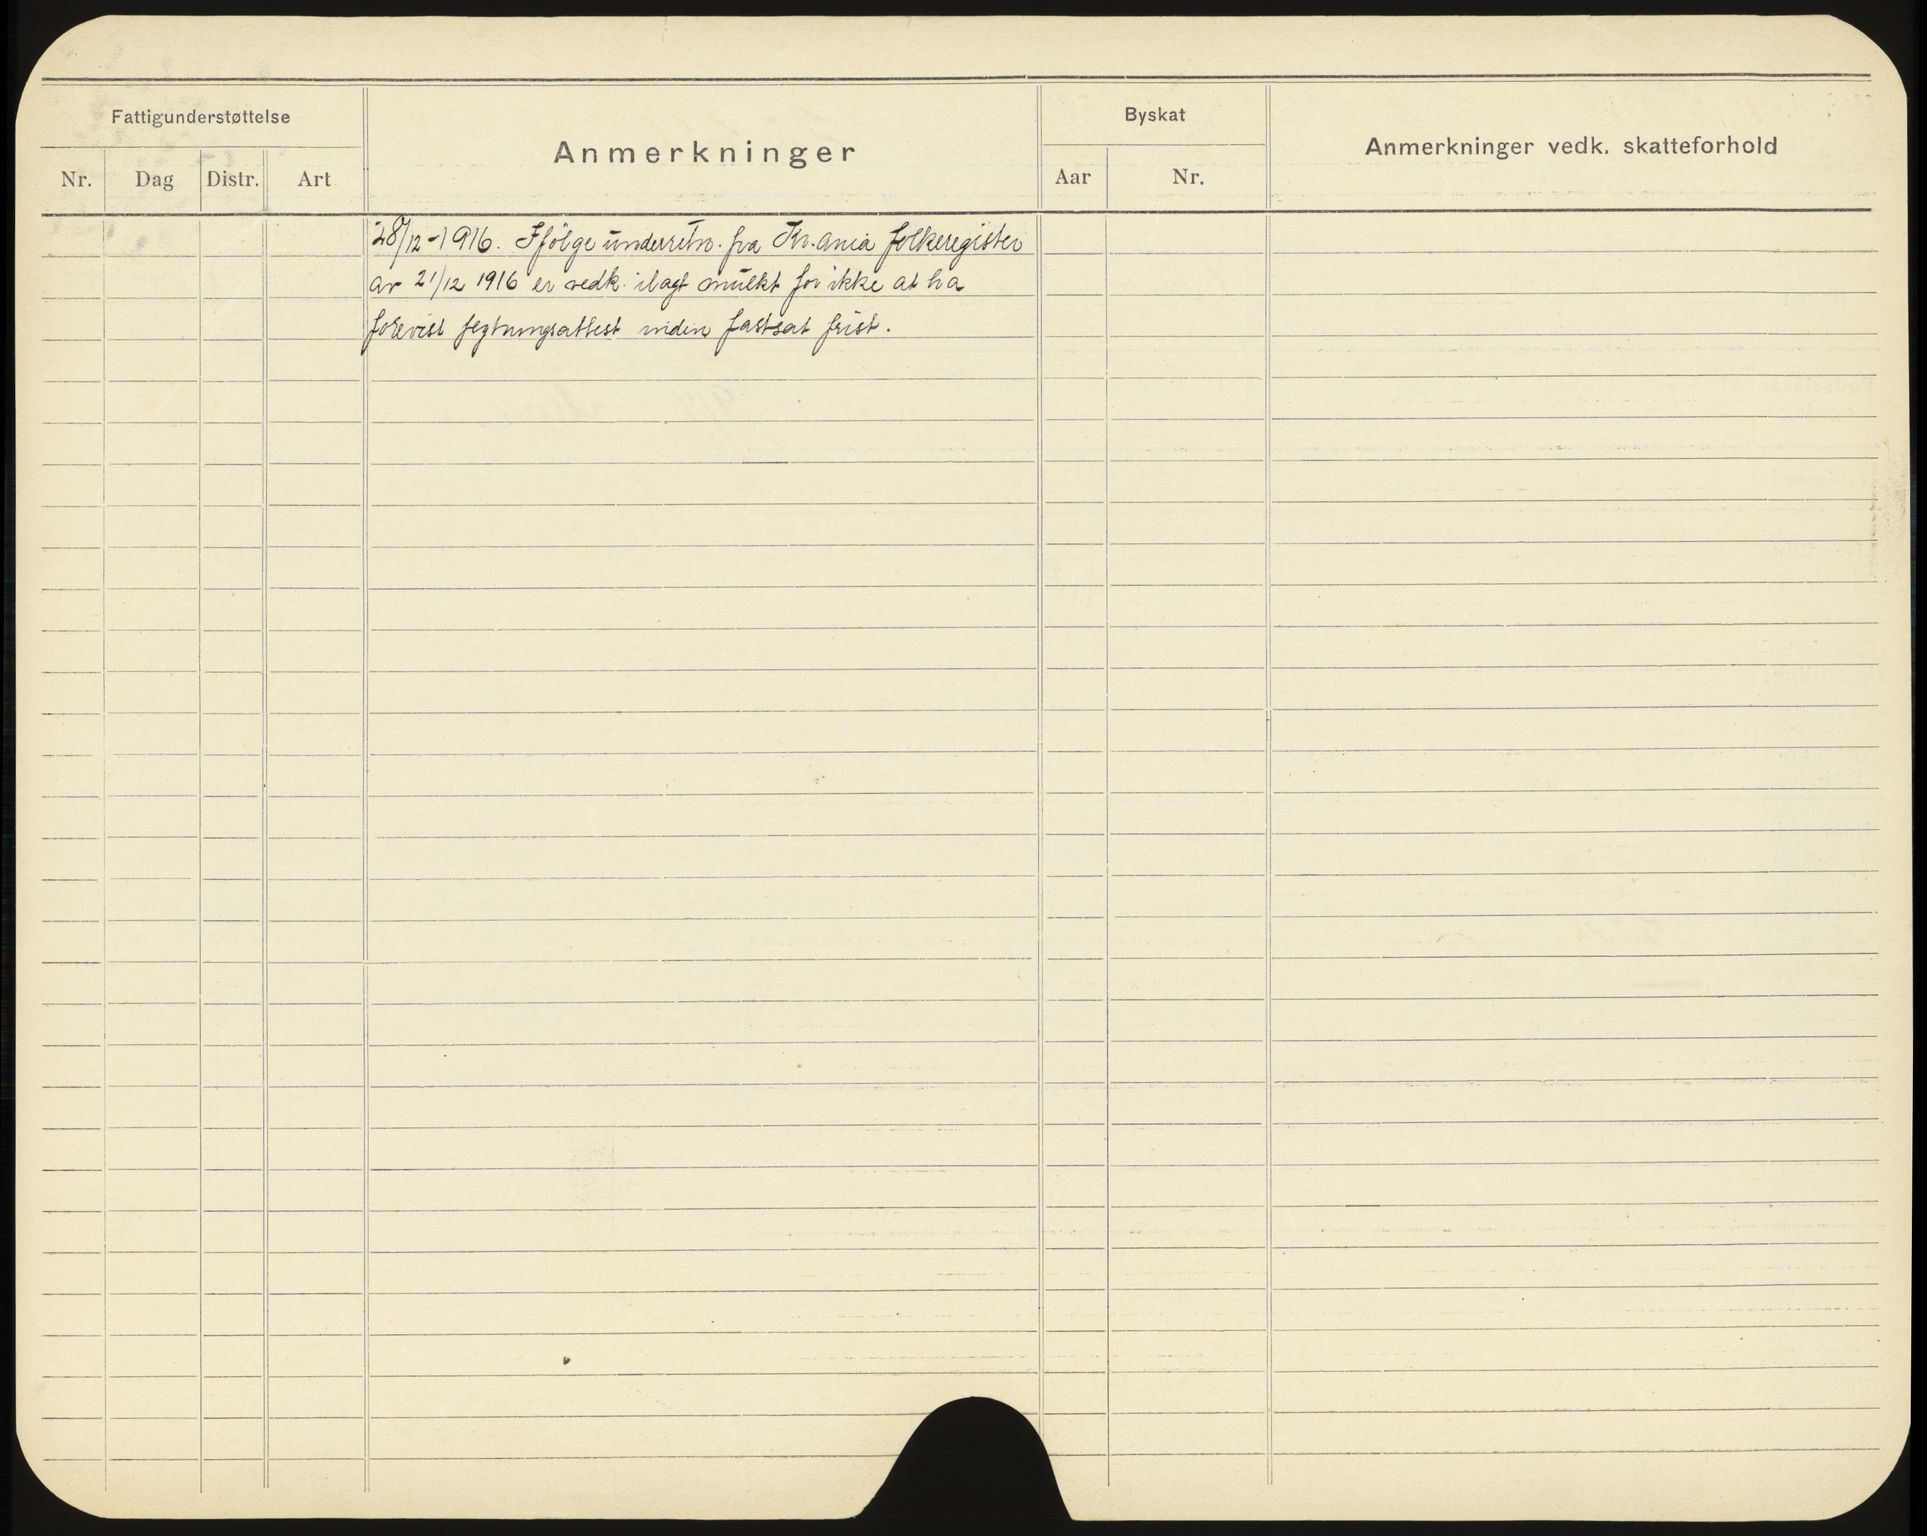 Fattigunderstøttelse
Anmerkninger
Byskat
Anmerkninger vedk. skatteforhold
Nr.
Dag
Distr.
Art
Aar
Nr.
28/12-1916. Ifölge underretn. fra Kr.ania folkeregister
av 21/12 1916 er vedk. ilagt mulkt for ikke at ha
forevist flytningsattest inden fastsat frist.